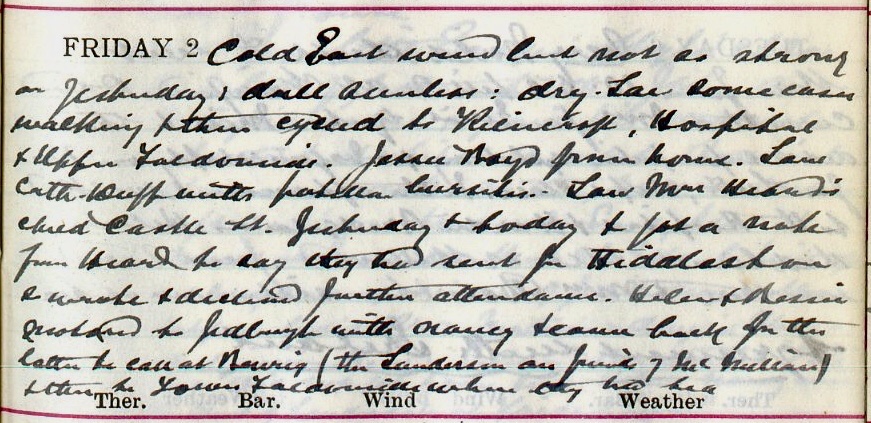 FRIDAY 2 Cold East wind but not as strong
as yesterday; dull sunless: dry. Saw some cases
walking & then cycled to, Hospital
& Upper Faldonside. Jessie Boyd from home. Saw
Cath. Duff with patellar bursitis. Saw Mrs Heard's
child Castle St. yesterday & today & got a note
from Heard to say they had sent for Hiddleston
& wrote & declined further attendance. Helen & Bessie
motored to Jedburgh with Nancy & came back for the
latter to call at Bewrig (the Sanderson are friends of McMillan)
& then to Lower Faldonside where they had tea
Ther. Bar. Wind Weather